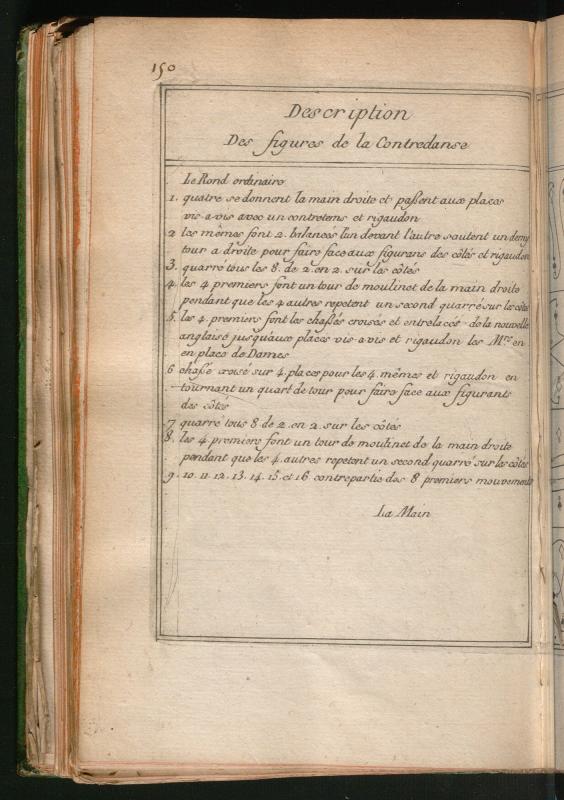 150
Description
Des figures de la Contredanse
Le Rond ordinaire
1. quatre se donnent la main droite et passent aux places
vis-a-vis avec un contretems et rigaudon
2 les mêmes font 2. balancés l'un devant l'autre sautent un demy
tour a droite pour faire face aux figurans des côtés et rigaudon
3. quarré tous les 8. de 2. en 2. sur les côtés
4. les 4 premiers font un tour de moulinet de la main droite
pendant que les 4 autres repetent un second quarré sur les côtés
5. les 4. premiers font les chassés croisés et entrelacés de la nouvelle
anglaise jusqu'aux places vis-a-vis et rigaudon les Mrs en
en place de Dames
6 chassé croisé sur 4. places pour les 4. mêmes et rigaudon en
tournant un quart de tour pour faire face aux figurants
des côtés
7 quarré tous 8 de 2. en 2. sur les côtés
8. les 4. premiers font un tour de moulinet de la main droite
pendant que les 4. autres repetent un second quarré sur les côtés
9. 10. 11. 12. 13. 14. 15. et 16. contrepartie des 8 premiers mouvements
La Main